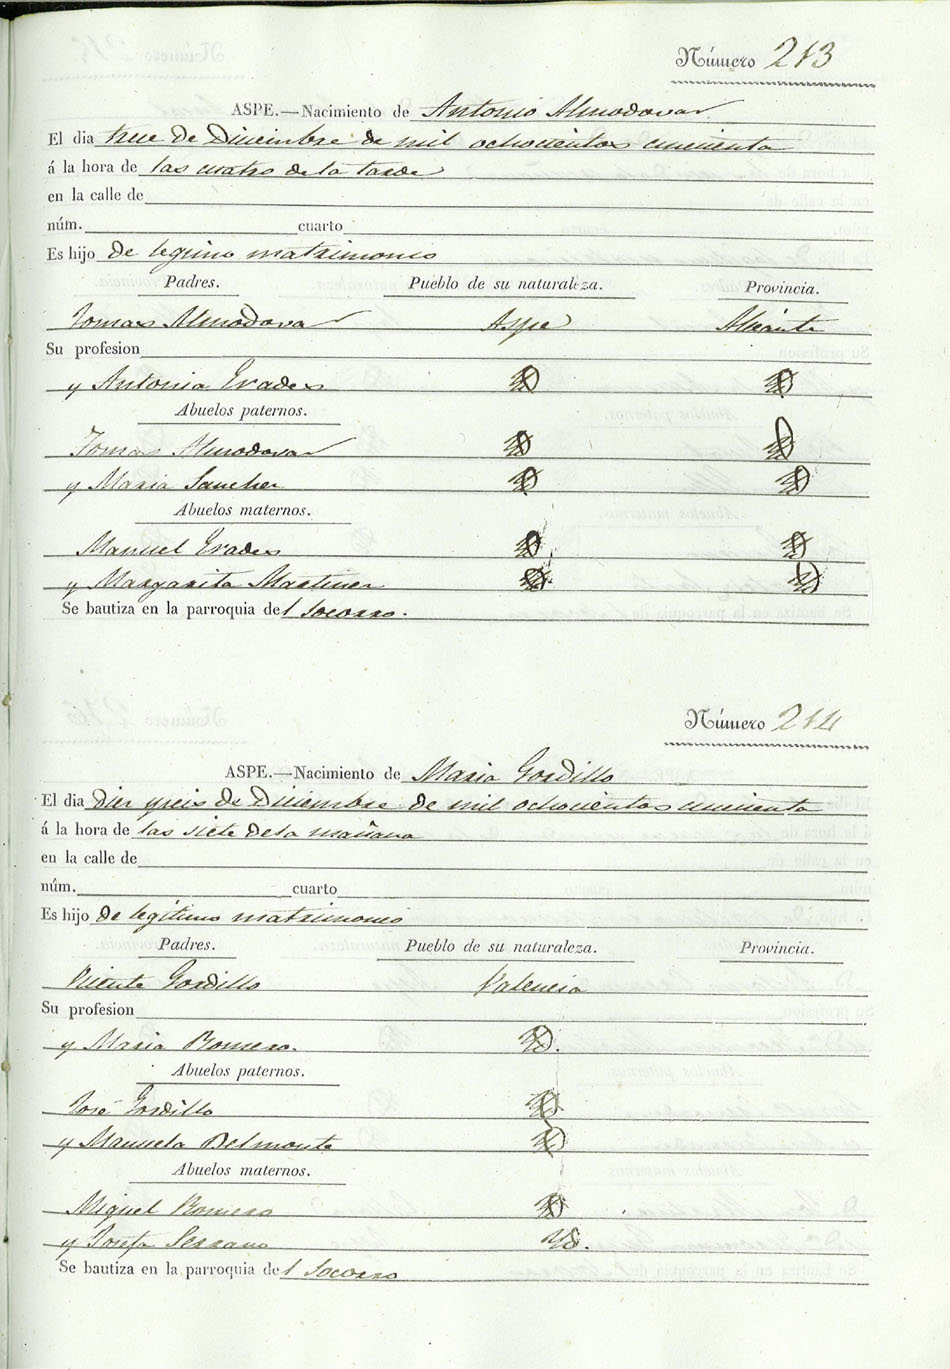 Número 213
ASPE.—Nacimiento de Antonio Almodovar
El dia trece de Diciembre de mil ochocientos cincuenta
á la hora de las cuatro de la tarde
en la calle de
núm. cuarto
Es hijo de legitimo matrimonio
Padres. Pueblo de su naturaleza. Provincia.
Tomas Almodovar Aspe Alicante
Su profesion
y Antonia Erades Yd Yd
Abuelos paternos.
Tomas Almodovar Yd Yd
y Maria Sanchez Yd Yd
Abuelos maternos.
Manuel Erades Yd Yd
y Margarita Martinez Yd Yd
Se bautiza en la parroquia del Socorro.
Número 214
ASPE.—Nacimiento de Maria Gordillo
El dia diez y seis de Diciembre de mil ochocientos cincuenta
á la hora de las siete de la mañana
en la calle de
núm. cuarto
Es hijo de legitimo matrimonio
Padres. Pueblo de su naturaleza. Provincia.
Vicente Gordillo Valencia
Su profesion
y Maria Romero. Yd.
Abuelos paternos.
José Gordillo Yd
y Manuela Belmonte Yd
Abuelos maternos.
Miguel Romero Yd
y Josefa Serrano Yd.
Se bautiza en la parroquia del Socorro